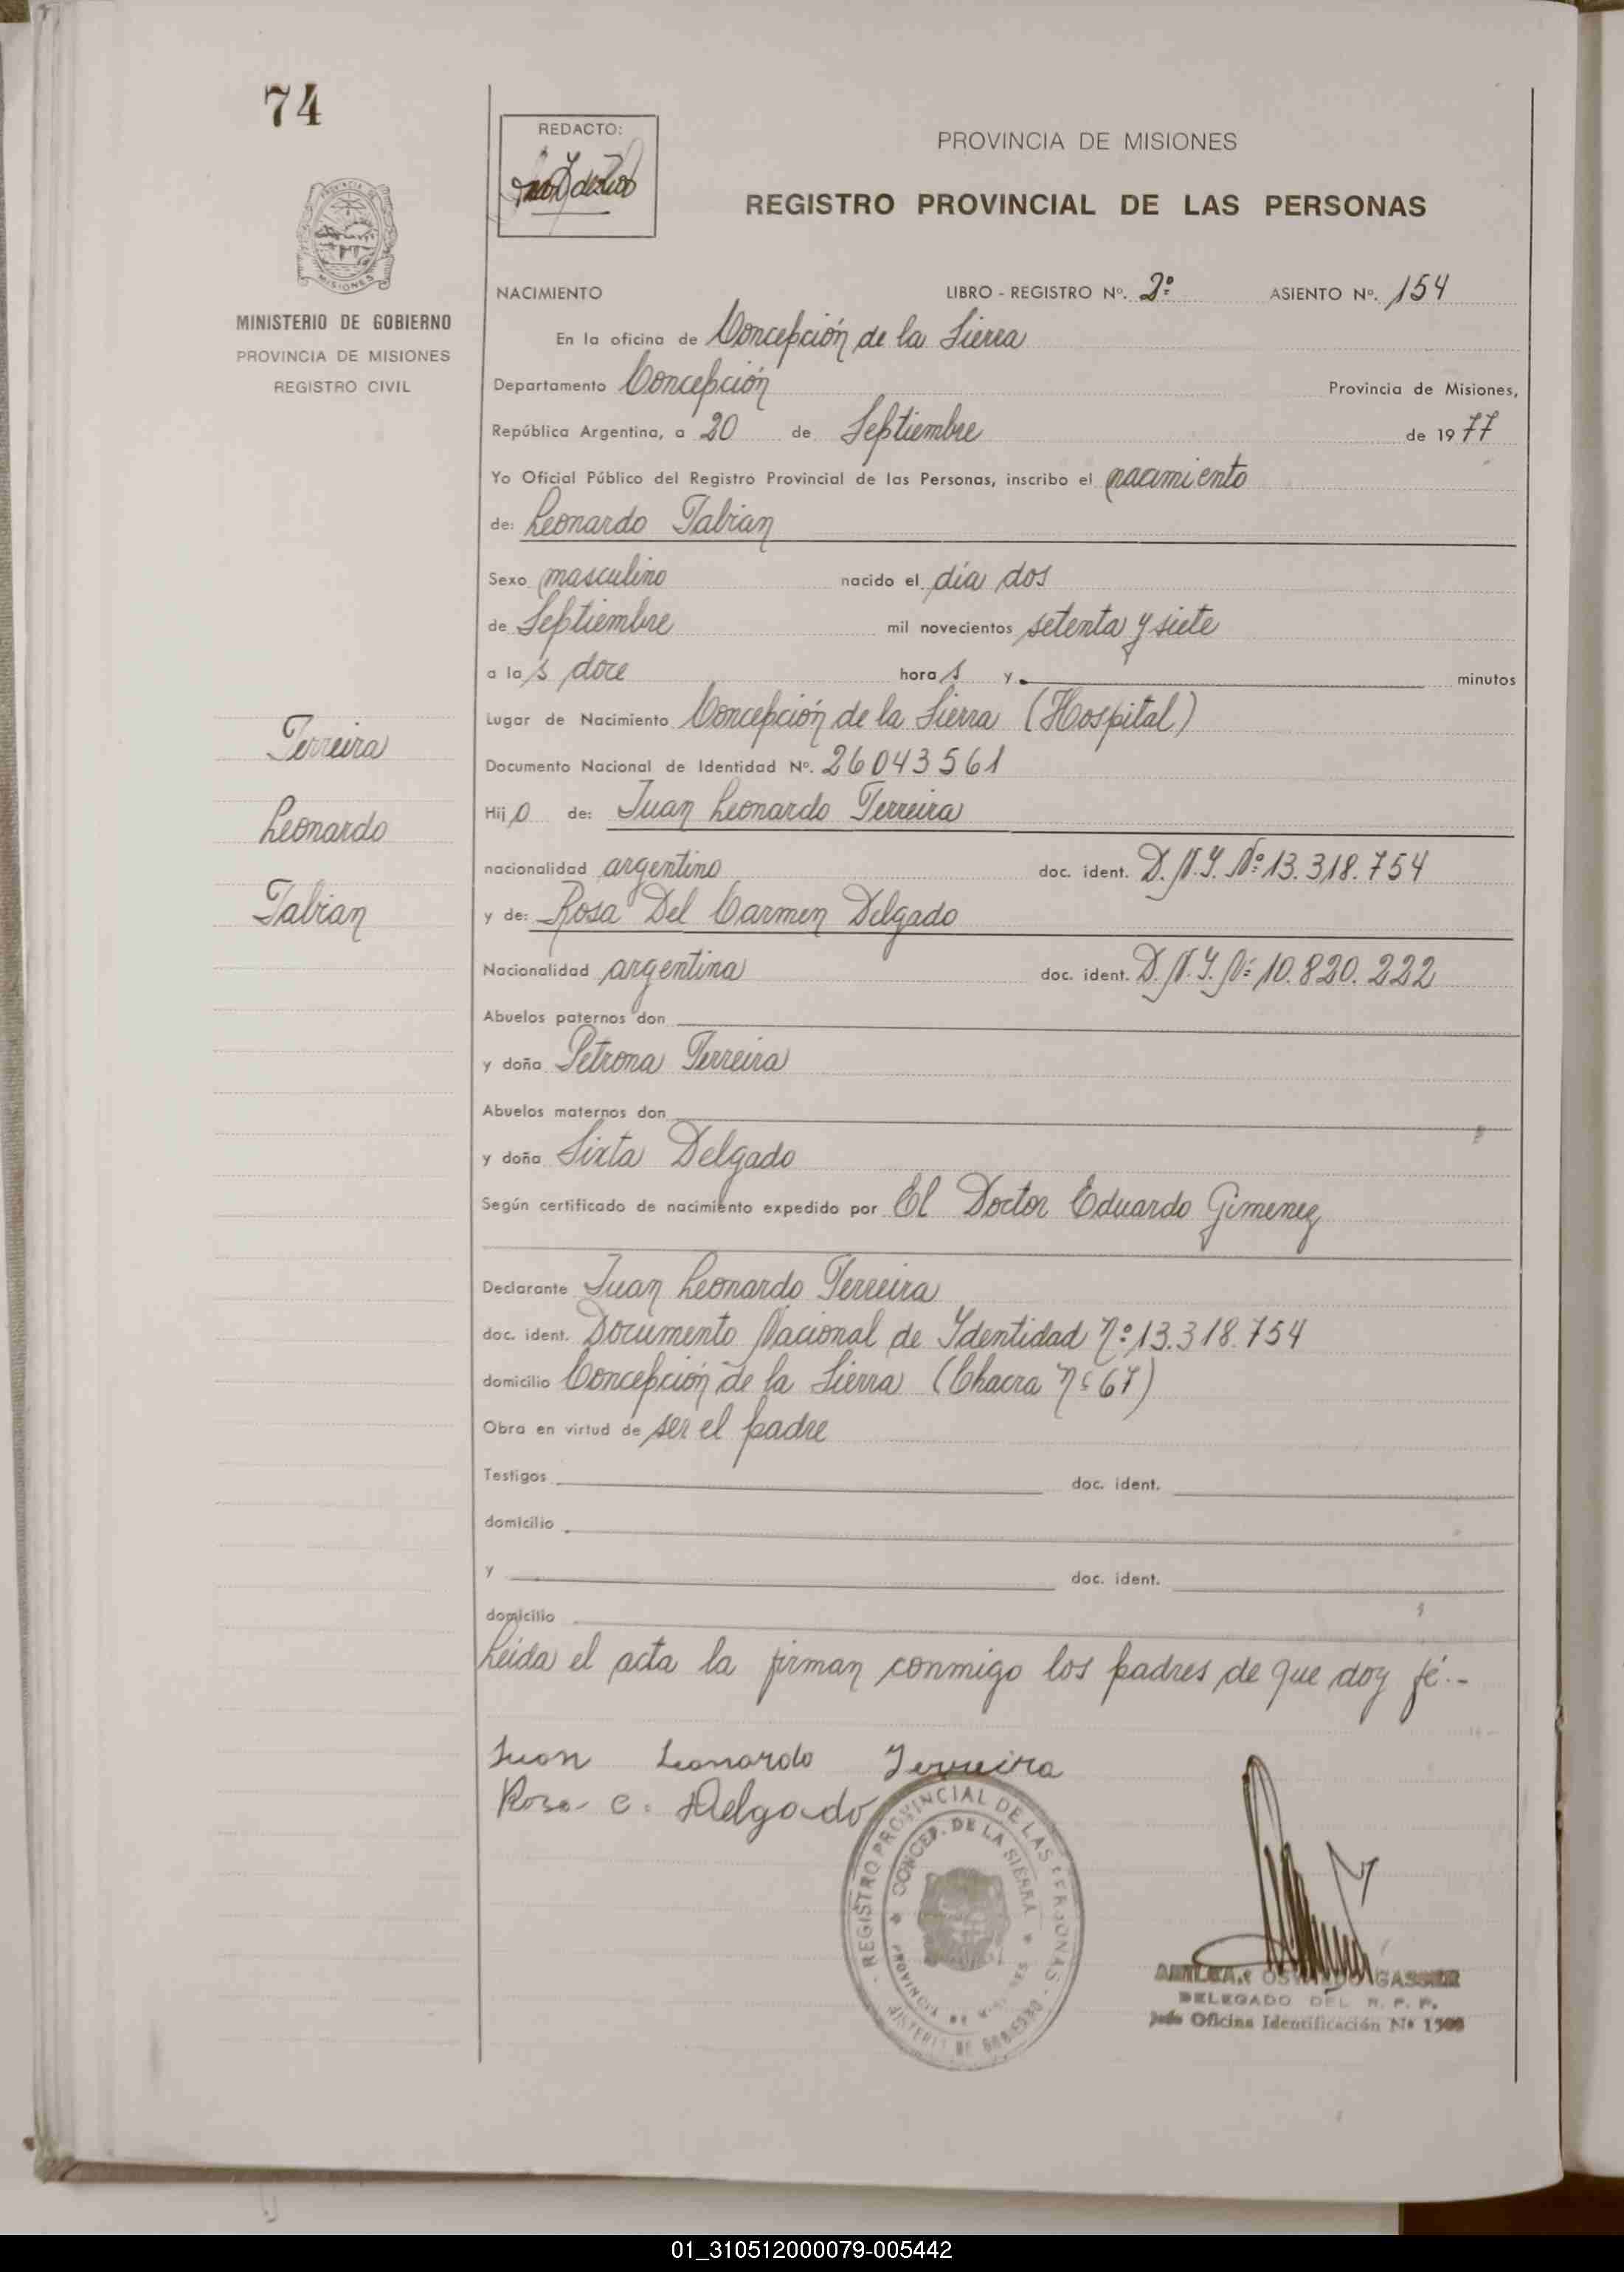 74
REDACTO:
PROVINCIA DE MISIONES
REGISTRO PROVINCIAL DE LAS PERSONAS
MISIONES
MINISTERIO DE GOBIERNO
PROVINCIA DE MISIONES
REGISTRO CIVIL
NACIMIENTO LIBRO - REGISTRO Nº. 2º ASIENTO Nº. 154
En la oficina de Concepción de la Sierra
Departamento Concepción Provincia de Misiones,
República Argentina, a 20 de Septiembre de 1977
Yo Oficial Público del Registro Provincial de las Personas, inscribo el nacimiento
de: Leonardo Fabian
Sexo masculino nacido el día dos
de Septiembre mil novecientos setenta y siete
a las doce horas y minutos
Lugar de Nacimiento Concepción de la Sierra (Hospital)
Documento Nacional de Identidad Nº. 26043561
Hijo de: Juan Leonardo Ferreira
nacionalidad argentino doc. ident. D.N.I. Nº 13.318.754
y de: Rosa Del Carmen Delgado
Nacionalidad argentina doc. ident. D.N.I. Nº 10.820.222
Abuelos paternos don
y doña Petrona Ferreira
Abuelos maternos don
y doña Sixta Delgado
Según certificado de nacimiento expedido por El Doctor Eduardo Gimenez
Declarante Juan Leonardo Ferreira
doc. ident. Documento Nacional de Identidad Nº 13.318.754
domicilio Concepción de la Sierra (Chacra Nº 67)
Obra en virtud de ser el padre
Testigos doc. ident.
domicilio
y doc. ident.
domicilio
Leída el acta la firman conmigo los padres de que doy fé.-
Ferreira
Leonardo
Fabian
Juan Leonardo Ferreira
Rosa C. Delgado
REGISTRO PROVINCIAL DE LAS PERSONAS
CONCEP. DE LA SIERRA
PROVINCIA DE MISIONES
MINISTERIO DE GOBIERNO
OSVALDO GASSNER
DELEGADO DEL R. P. P.
Jefe Oficina Identificación Nº
01_310512000079-005442